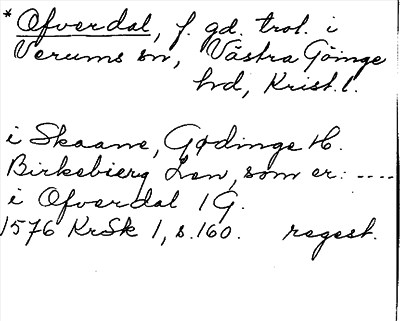 * Ofverdal, f. gd. trol. i
Verums sn, Västra Göinge
hd, Krist. l.
i Skaane, Gødinge H.
Birkebierg Len, som er: ----
i Ofverdal 1 G.
1576 KrSk 1, s. 160. regest.